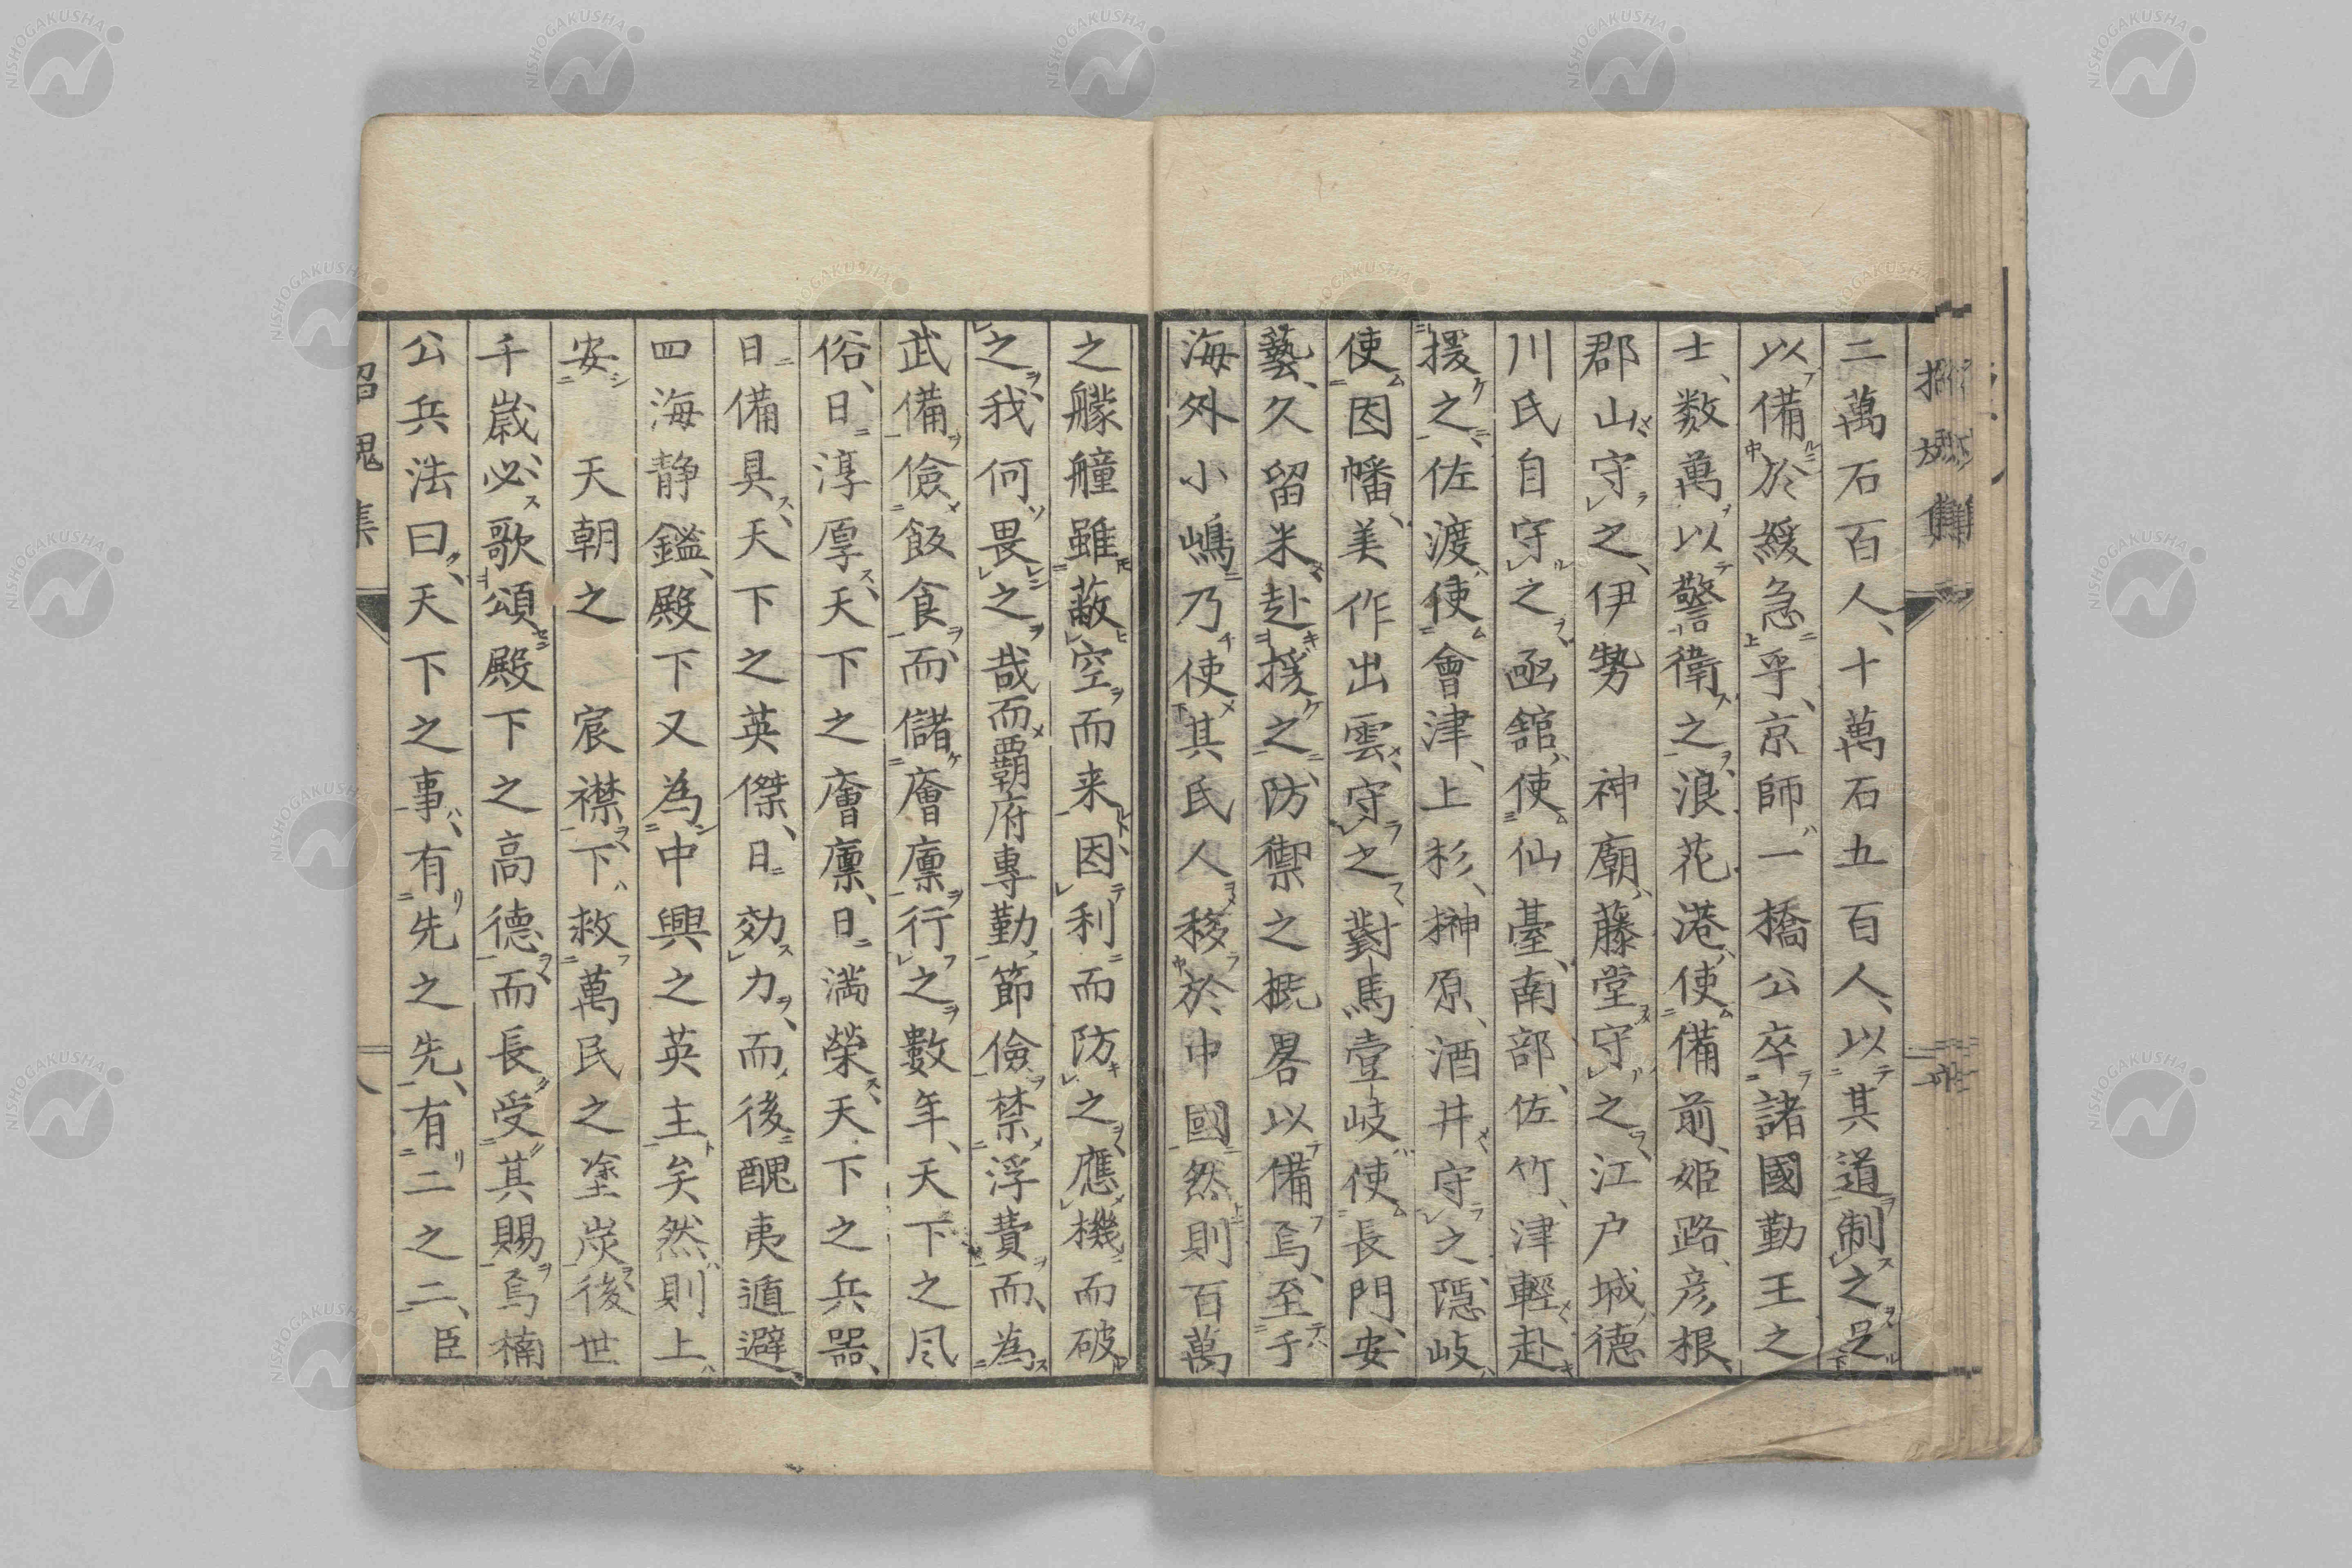 二萬石百人、十萬石五百人、以其道制之足
以備於緩急乎、京師一橋公卒諸國勤王之
士、数萬以警衛之、浪花港使備前、姫路、彦根、
郡山守之、伊勢　神廟、藤堂守之、江戸城德
川氏自守之、函舘使仙臺、南部、佐竹、津輕赴
援之、佐渡使會津、上杉、榊原、酒井守之、隱岐
使因幡、美作出雲守之、對馬壹岐使長門、安
藝、久留米赴援之、防禦之概畧以備焉、至于
海外小嶋乃使其民人移於中國然則百萬
之艨艟雖蔽空而来、因利而防之、應機而破
之、我何畏之哉而覇府專勤節儉禁浮費而、為
武備儉飯食而儲廥廩行之數年、天下之风
俗、日淳厚、天下之廥廩、日満榮、天下之兵器、
日備具、天下之英傑、日効力、而後醜夷遁避、
四海静鑑、殿下又為中興之英主矣然則上
安　天朝之　宸襟、下救萬民之塗炭後世
千歳、必歌頌殿下之高德、而長受其賜焉楠
公兵法曰、天下之事、有先之先、有二之二、臣